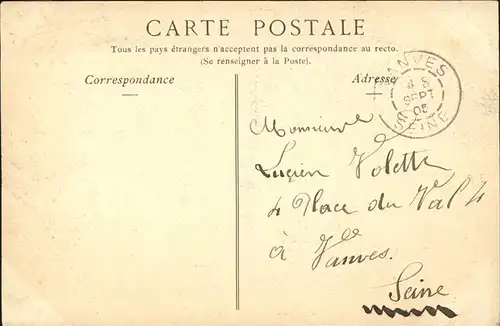 CARTE POSTALE
Tous les pays étrangers n'acceptent pas la correspondance au recto.
(Se renseigner à la Poste).
Correspondance
Adresse
VANVES
SEPT
05
SEINE
Monsieur
Lucien Volette
4 Place du Val 4
à Vanves
Seine